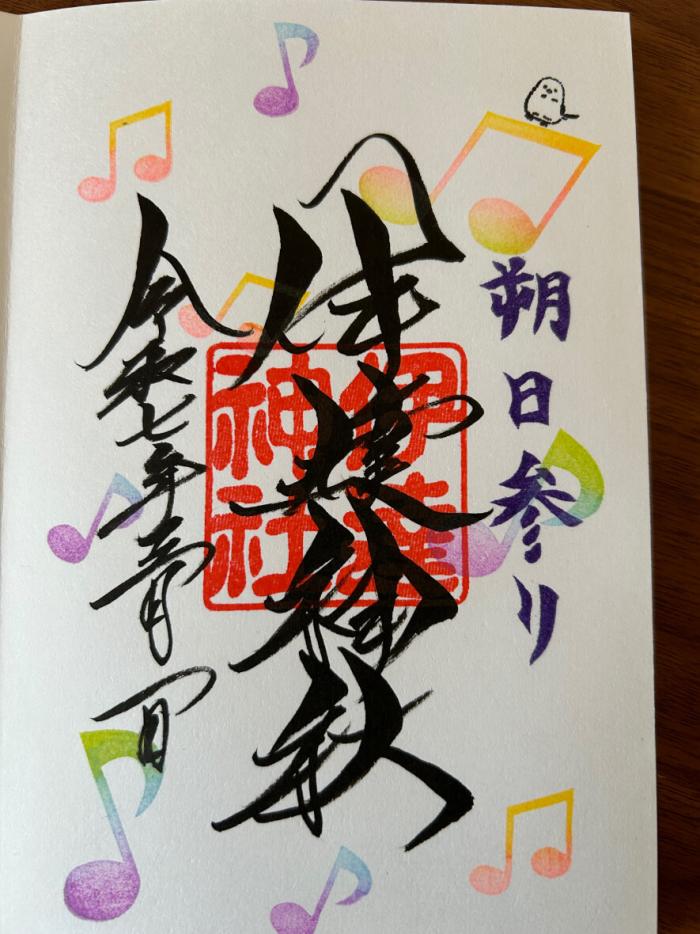 朔日参り
伊達神社
伊達
神社
令和七年 月一日